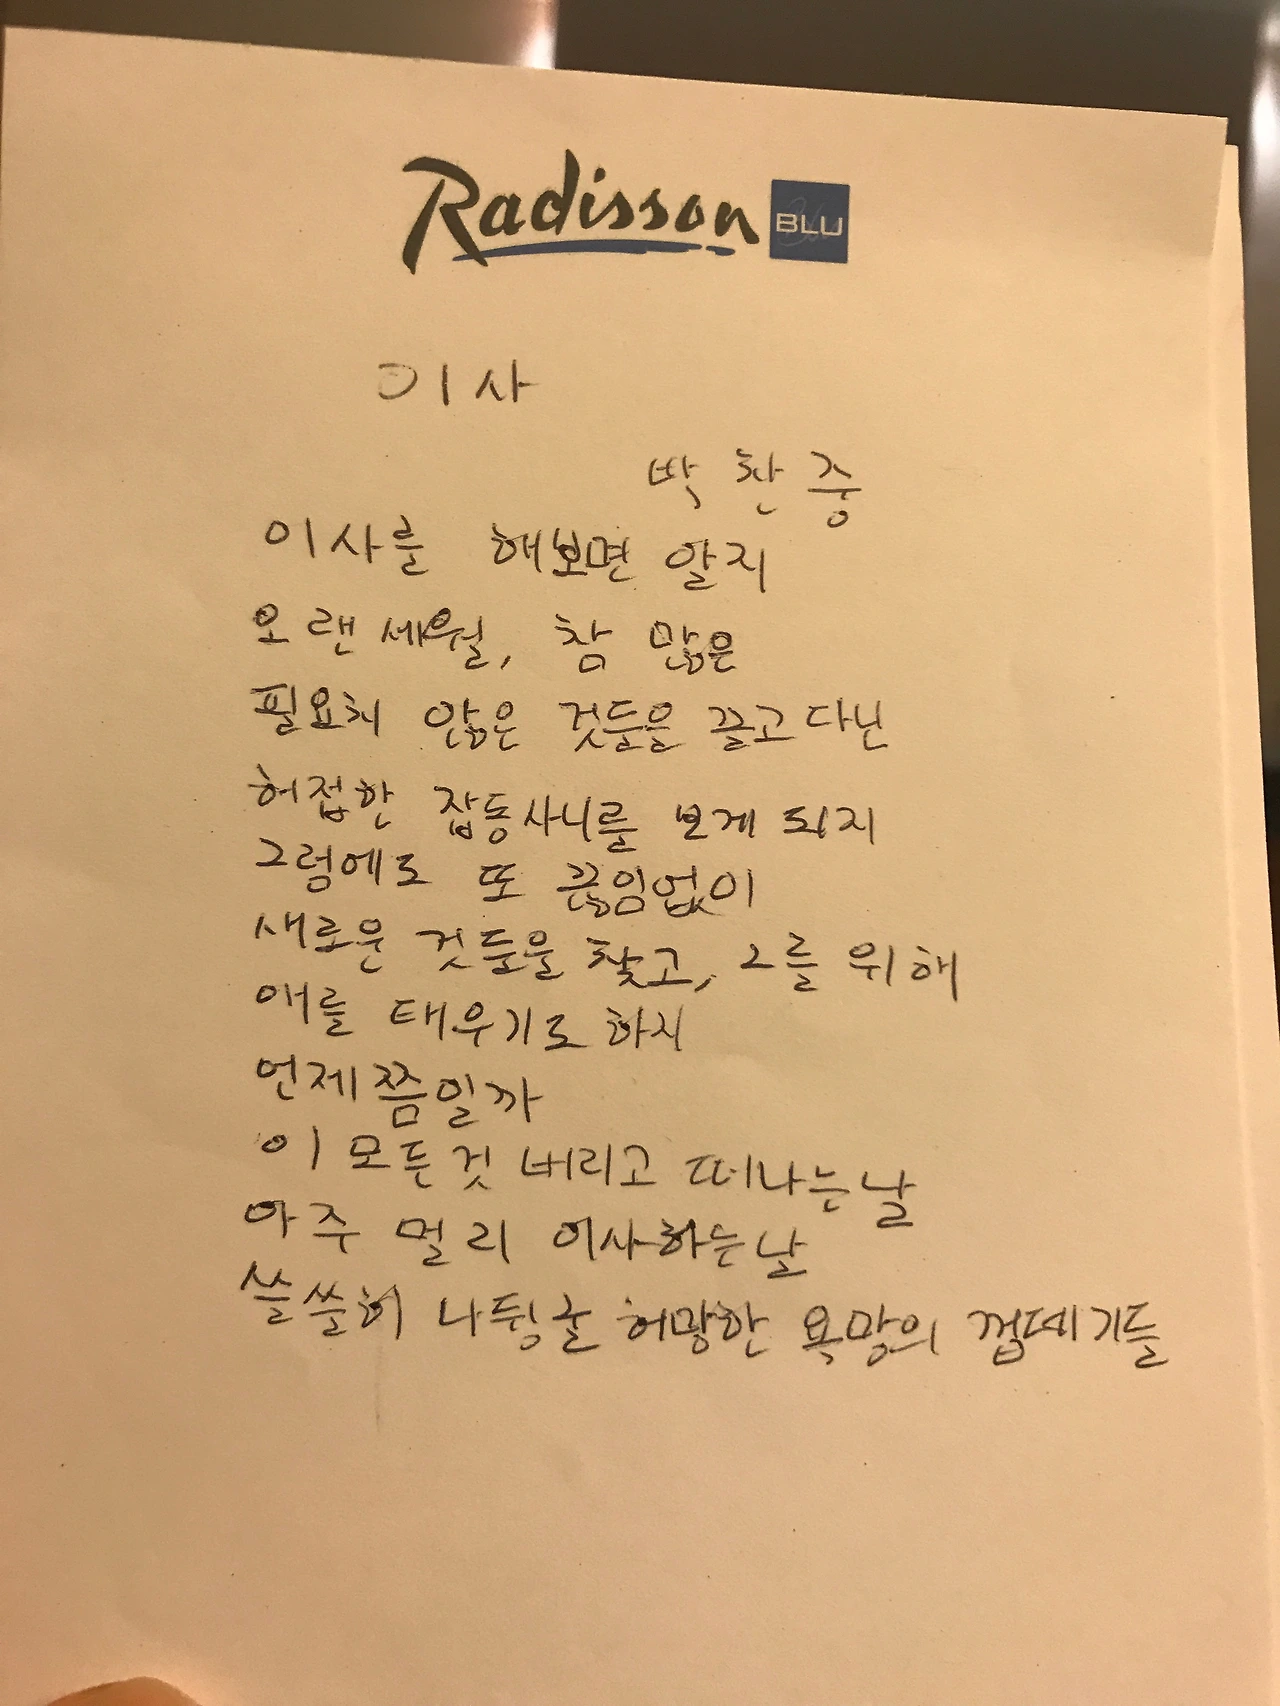 Radisson BLU
이사
박찬중
이사를 해보면 알지
오랜 세월, 참 많은
필요치 않은 것들을 끌고다닌
허접한 잡동사니를 보게 되지
그럼에도 또 끊임없이
새로운 것들을 찾고, 그를 위해
애를 태우기도 하지
언제쯤일까
이 모든것 버리고 떠나는날
아주 멀리 이사하는날
쓸쓸히 나뒹굴 허망한 욕망의 껍데기들